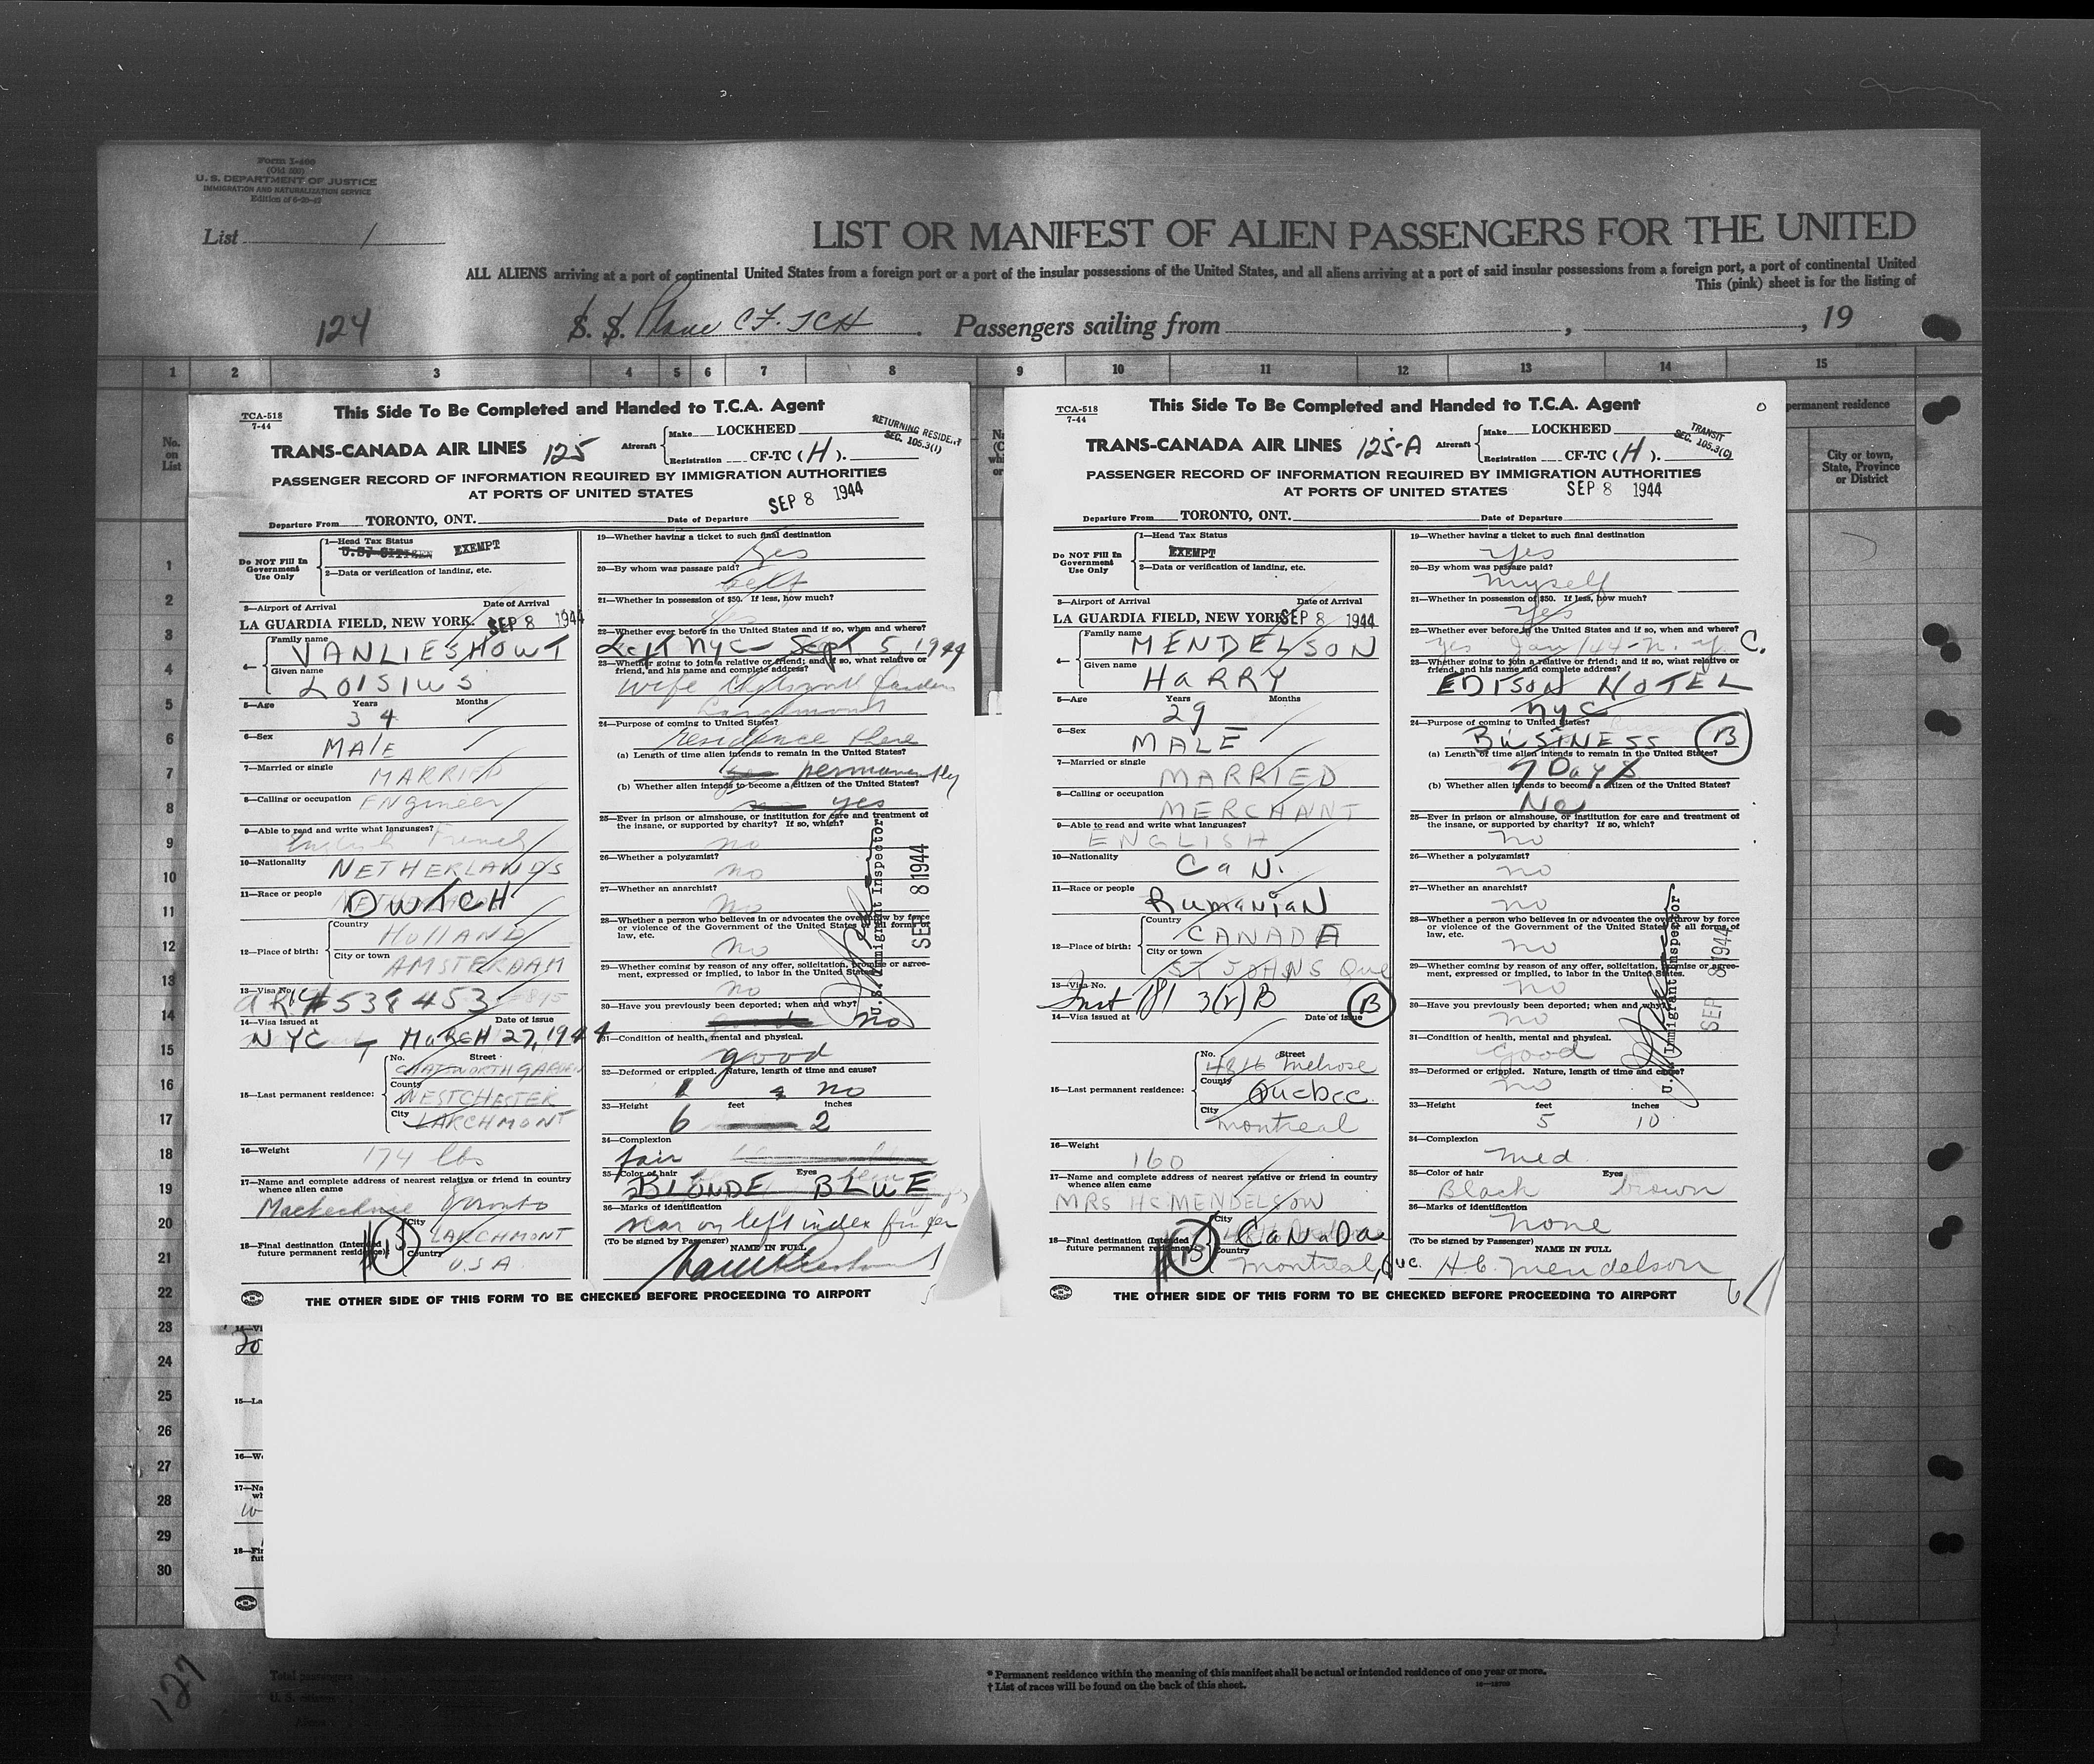 Form I-400
(Old 500)
U. S. DEPARTMENT OF JUSTICE
IMMIGRATION AND NATURALIZATION SERVICE
List 1
LIST OR MANIFEST OF ALIEN PASSENGERS FOR THE UNITED
ALL ALIENS arriving at a port of continental United States from a foreign port or a port of the insular possessions of the United States, and all aliens arriving at a port of said insular possessions from a foreign port, a port of continental United
This (pink) sheet is for the listing of
124
S. S. Plane CF. TCH Passengers sailing from , , 19
1 2 3 4 5 6 7 8 9 10 11 12 13 14 15
permanent residence
No.
on
List
City or town,
State, Province
or District
1
2
3
4
5
6
7
8
9
10
11
12
13
14
15
16
17
18
19
20
21
22
23
24
25
26
27
28
29
30
This Side To Be Completed and Handed to T.C.A. Agent
TCA-518
7-44
RETURNING RESIDENT
SEC. 105.3(1)
TRANS-CANADA AIR LINES 125
Aircraft Make LOCKHEED
Registration CF-TC (H).
PASSENGER RECORD OF INFORMATION REQUIRED BY IMMIGRATION AUTHORITIES
AT PORTS OF UNITED STATES
SEP 8 1944
Departure From TORONTO, ONT. Date of Departure
Do NOT Fill In
Government
Use Only
1—Head Tax Status
U.S. CITIZEN EXEMPT
2—Data or verification of landing, etc.
3—Airport of Arrival Date of Arrival
LA GUARDIA FIELD, NEW YORK. SEP 8 1944
4— Family name
VANLIESHOWT
Given name
LOISIWS
5—Age Years Months
34
6—Sex
MALE
7—Married or single
MARRIED
8—Calling or occupation ENgineer
9—Able to read and write what languages?
English French
10—Nationality
NETHERLANDS
11—Race or people
DWTCH
12—Place of birth:
Country
HOLLAND
City or town
AMSTERDAM
13—Visa No.
AR # 538453
14—Visa issued at Date of issue
NYC MARCH 27, 1944
15—Last permanent residence:
No. Street
CHATWORTH GARDEN
County
WESTCHESTER
City
LARCHMONT
16—Weight
174 lbs
17—Name and complete address of nearest relative or friend in country
whence alien came
Toronto
18—Final destination (Intended
future permanent residence):
City
LARCHMONT
Country
U.S.A.
19—Whether having a ticket to such final destination
yes
20—By whom was passage paid?
self
21—Whether in possession of $50. If less, how much?
yes
22—Whether ever before in the United States and if so, when and where?
Left NYC — Sept 5, 1944
23—Whether going to join a relative or friend; and if so, what relative or
friend, and his name and complete address?
wife Chatsworth Gardens
Larchmont
24—Purpose of coming to United States?
residence there
(a) Length of time alien intends to remain in the United States?
permanently
(b) Whether alien intends to become a citizen of the United States?
yes
25—Ever in prison or almshouse, or institution for care and treatment of
the insane, or supported by charity? If so, which?
no
26—Whether a polygamist?
no
27—Whether an anarchist?
no
28—Whether a person who believes in or advocates the overthrow by force
or violence of the Government of the United States or all forms of
law, etc.
no
29—Whether coming by reason of any offer, solicitation, promise or agree-
ment, expressed or implied, to labor in the United States.
no
30—Have you previously been deported; when and why?
no
31—Condition of health, mental and physical.
good
32—Deformed or crippled. Nature, length of time and cause?
no
33—Height feet inches
6 2
34—Complexion
fair
35—Color of hair Eyes
BLONDE BLUE
36—Marks of identification
scar on left index finger
(To be signed by Passenger)
NAME IN FULL
U.S. Immigrant Inspector
SEP 8 1944
THE OTHER SIDE OF THIS FORM TO BE CHECKED BEFORE PROCEEDING TO AIRPORT
5
This Side To Be Completed and Handed to T.C.A. Agent
TCA-518
7-44
TRANSIT
SEC. 105.3(C)
TRANS-CANADA AIR LINES 125-A
Aircraft Make LOCKHEED
Registration CF-TC (H).
PASSENGER RECORD OF INFORMATION REQUIRED BY IMMIGRATION AUTHORITIES
AT PORTS OF UNITED STATES
SEP 8 1944
Departure From TORONTO, ONT. Date of Departure
Do NOT Fill In
Government
Use Only
1—Head Tax Status
EXEMPT
2—Data or verification of landing, etc.
3—Airport of Arrival Date of Arrival
LA GUARDIA FIELD, NEW YORK SEP 8 1944
4— Family name
MENDELSON
Given name
HARRY
5—Age Years Months
29
6—Sex
MALE
7—Married or single
MARRIED
8—Calling or occupation
MERCHANT
9—Able to read and write what languages?
ENGLISH
10—Nationality
CaN.
11—Race or people
RumaniaN
12—Place of birth:
Country
CANADA
City or town
ST JOHNS Que
13—Visa No.
Inst 181 3(2) B B
14—Visa issued at Date of issue
15—Last permanent residence:
No. Street
4816 Melrose
County
Quebec
City
Montreal
16—Weight
160
17—Name and complete address of nearest relative or friend in country
whence alien came
MRS HC MENDELSON
18—Final destination (Intended
future permanent residence):
City
CaNaDa
Country
Montreal, Quc.
19—Whether having a ticket to such final destination
yes
20—By whom was passage paid?
myself
21—Whether in possession of $50. If less, how much?
yes
22—Whether ever before in the United States and if so, when and where?
yes Jan/44 - N. Y. C.
23—Whether going to join a relative or friend; and if so, what relative or
friend, and his name and complete address?
EDISON HOTEL
NYC
24—Purpose of coming to United States?
BuSINESS B
(a) Length of time alien intends to remain in the United States?
7 Days
(b) Whether alien intends to become a citizen of the United States?
No
25—Ever in prison or almshouse, or institution for care and treatment of
the insane, or supported by charity? If so, which?
no
26—Whether a polygamist?
no
27—Whether an anarchist?
no
28—Whether a person who believes in or advocates the overthrow by force
or violence of the Government of the United States or all forms of
law, etc.
no
29—Whether coming by reason of any offer, solicitation, promise or agree-
ment, expressed or implied, to labor in the United States.
no
30—Have you previously been deported; when and why?
no
31—Condition of health, mental and physical.
Good
32—Deformed or crippled. Nature, length of time and cause?
no
33—Height feet inches
5 10
34—Complexion
med.
35—Color of hair Eyes
Black brown
36—Marks of identification
none
(To be signed by Passenger)
NAME IN FULL
H.C. Mendelson
U.S. Immigrant Inspector
SEP 8 1944
THE OTHER SIDE OF THIS FORM TO BE CHECKED BEFORE PROCEEDING TO AIRPORT
6
15—La
16—W
17—Na
18—Fi
fut
127
Total passengers
U. S. citizens
* Permanent residence within the meaning of this manifest shall be actual or intended residence of one year or more.
† List of races will be found on the back of this sheet.